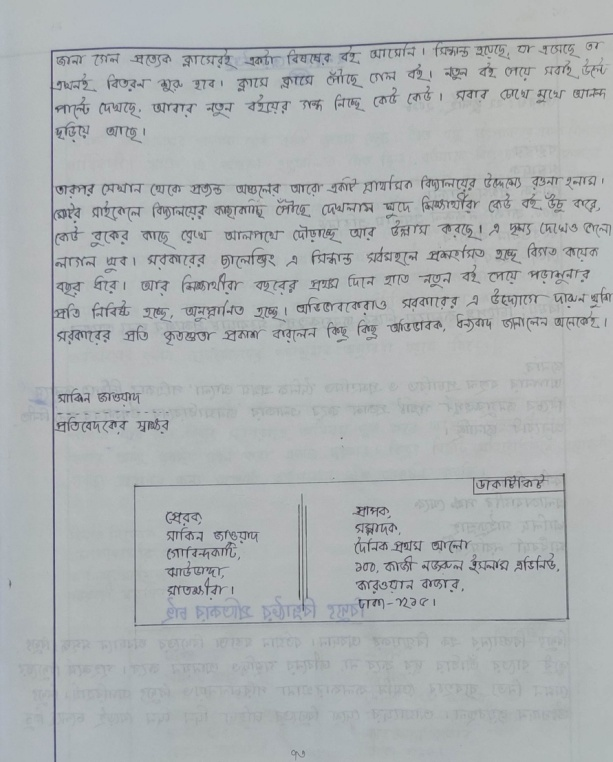 জানা গেল প্রত্যেক ক্লাসেরই একটা বিষয়ের বই আসেনি। সিদ্ধান্ত হয়েছে, যা এসেছে তা
এখনই বিতরন শুরু হবে। ক্লাসে ক্লাসে পৌঁছে গেল বই। নতুন বই পেয়ে সবাই উল্টে
পাল্টে দেখছে, আবার নতুন বইয়ের গন্ধ নিচ্ছে কেউ কেউ। সবার চোখে মুখে আনন্দ
ছড়িয়ে আছে।
তারপর সেখান থেকে প্রত্যন্ত অঞ্চলের আরো একটি প্রাথমিক বিদ্যালয়ের উদ্দেশ্যে রওনা হলাম।
মোটর সাইকেলে বিদ্যালয়ের কাছাকাছি পৌঁছে দেখলাম খুদে শিক্ষার্থীরা কেউ বই উঁচু করে,
কেউ বুকের কাছে রেখে আলপথে দৌড়াচ্ছে আর উল্লাস করছে। এ দৃশ্য দেখেও ভালো
লাগল খুব। সরকারের চ্যালেঞ্জিং এ সিদ্ধান্ত সর্বমহলে প্রশংসিত হচ্ছে বিগত কয়েক
বছর ধরে। আর শিক্ষার্থীরা বছরের প্রথম দিনে হাতে নতুন বই পেয়ে পড়াশুনার
প্রতি নিবিষ্ট হচ্ছে, অনুপ্রানিত হচ্ছে। অভিভাবকেরাও সরকারের এ উদ্যোগে দারুন খুশি
সরকারের প্রতি কৃতজ্ঞতা প্রকাশ করলেন কিছু কিছু অভিভাবক, ধন্যবাদ জানালেন অনেকেই।
সাকিন জাওয়াদ
প্রতিবেদকের স্বাক্ষর
ডাকটিকিট
প্রেরক,
সাকিন জাওয়াদ
গোবিন্দকাটি,
ঝাউডাঙ্গা,
সাতক্ষীরা।
প্রাপক,
সম্পাদক,
দৈনিক প্রথম আলো
১০০, কাজী নজরুল ইসলাম এভিনিউ,
কারওয়ান বাজার,
ঢাকা-১২১৫।
৭৩